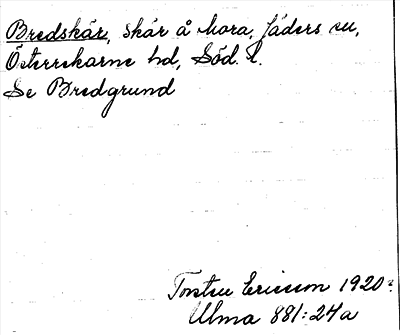 Bredskär, skär å Mora, Jäders sn,
Österrekarne hd, Söd. l.
Se Bredgrund
Torsten Ericsson 1920
Ulma 881:24a